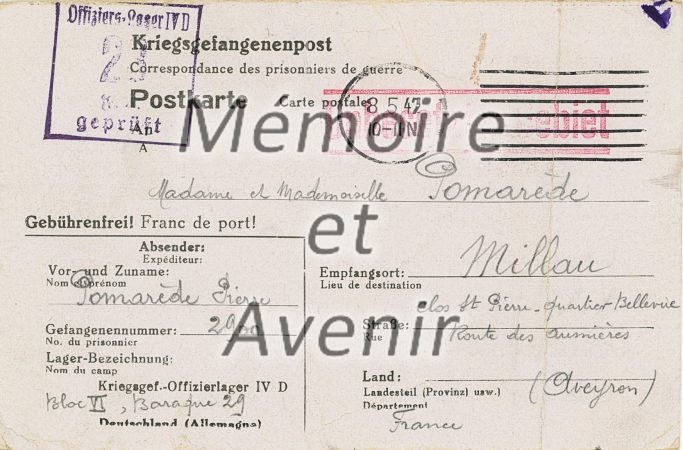 Offiziers-Lager IV D
2
geprüft
Kriegsgefangenenpost
Correspondance des prisonniers de guerre
Postkarte Carte postale
8 5 42
10-11 N
An
A
Mémoire
et
Avenir
Madame et Mademoiselle Pomarède
Gebührenfrei! Franc de port!
Absender:
Expéditeur:
Vor- und Zuname:
Nom et prénom
Pomarède Pierre
Gefangenennummer: 2900
No. du prisonnier
Lager-Bezeichnung:
Nom du camp
Kriegsgef.-Offizierlager IV D
Bloc VI, Baraque 29
Deutschland (Allemagne)
Empfangsort: Millau
Lieu de destination
clos St Pierre - quartier Bellevue
Straße: Route des aumières
Rue
Land: (Aveyron)
Landesteil (Provinz) usw.)
Département
France